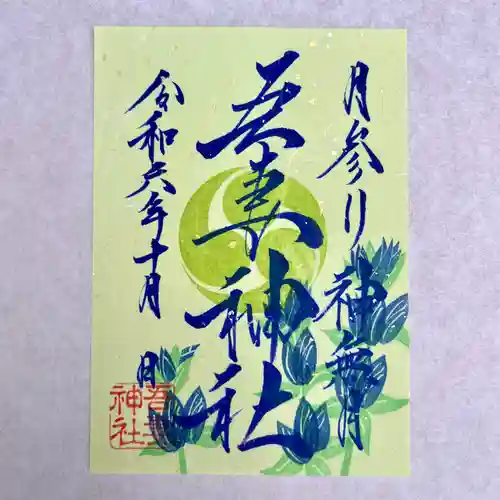 月参り 神無月
吾妻神社
令和六年十月 日
吾妻神社